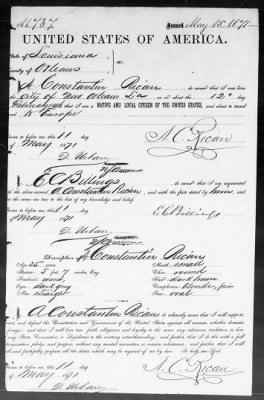 No 2787 Issued May 15 1871
UNITED STATES OF AMERICA.
State of Louisiana
County of Orleans
I, A. Constantin Ricau, do swear that I was born
City of New Orleans La on or about the day of
February that I am a NATIVE AND LOYAL CITIZEN OF THE UNITED STATES, and about to travel
to Europe
Sworn to before me this 11 day
of May 1871 A. C. Ricau
D. Urban
I, E. C. Billings, do swear that I am acquainted
with the above named A. Constantin Ricau, and with the facts stated by him
are true to the best of my knowledge and belief.
Sworn to before me this 11 day
of May 1871 E C Billings
D. Urban
Description of A Constantin Ricau
Age: 25 years Mouth: small
Stature: 5 feet 5 inches Eng. Chin: round
Forehead: Hair: dark brown
Eyes: dark grey Complexion: fair
Nose: straight Face: oval
I, A Constantin Ricau do solemnly swear that I will support,
protect, and defend the Constitution and Government of the United States against all enemies, whether domestic
or foreign; and that I will bear true faith, allegiance, and loyalty to the same, any ordinance, resolution, or law
of any State, Convention, or Legislature to the contrary notwithstanding; and further, that I do this with a full
determination, pledge, and purpose, without any mental reservation or evasion whatsoever; and further, that I will
well and faithfully perform all the duties which may be required of me by law. So help me God.
Sworn to before me this 11 day
of May 1871 A. C. Ricau
D. Urban